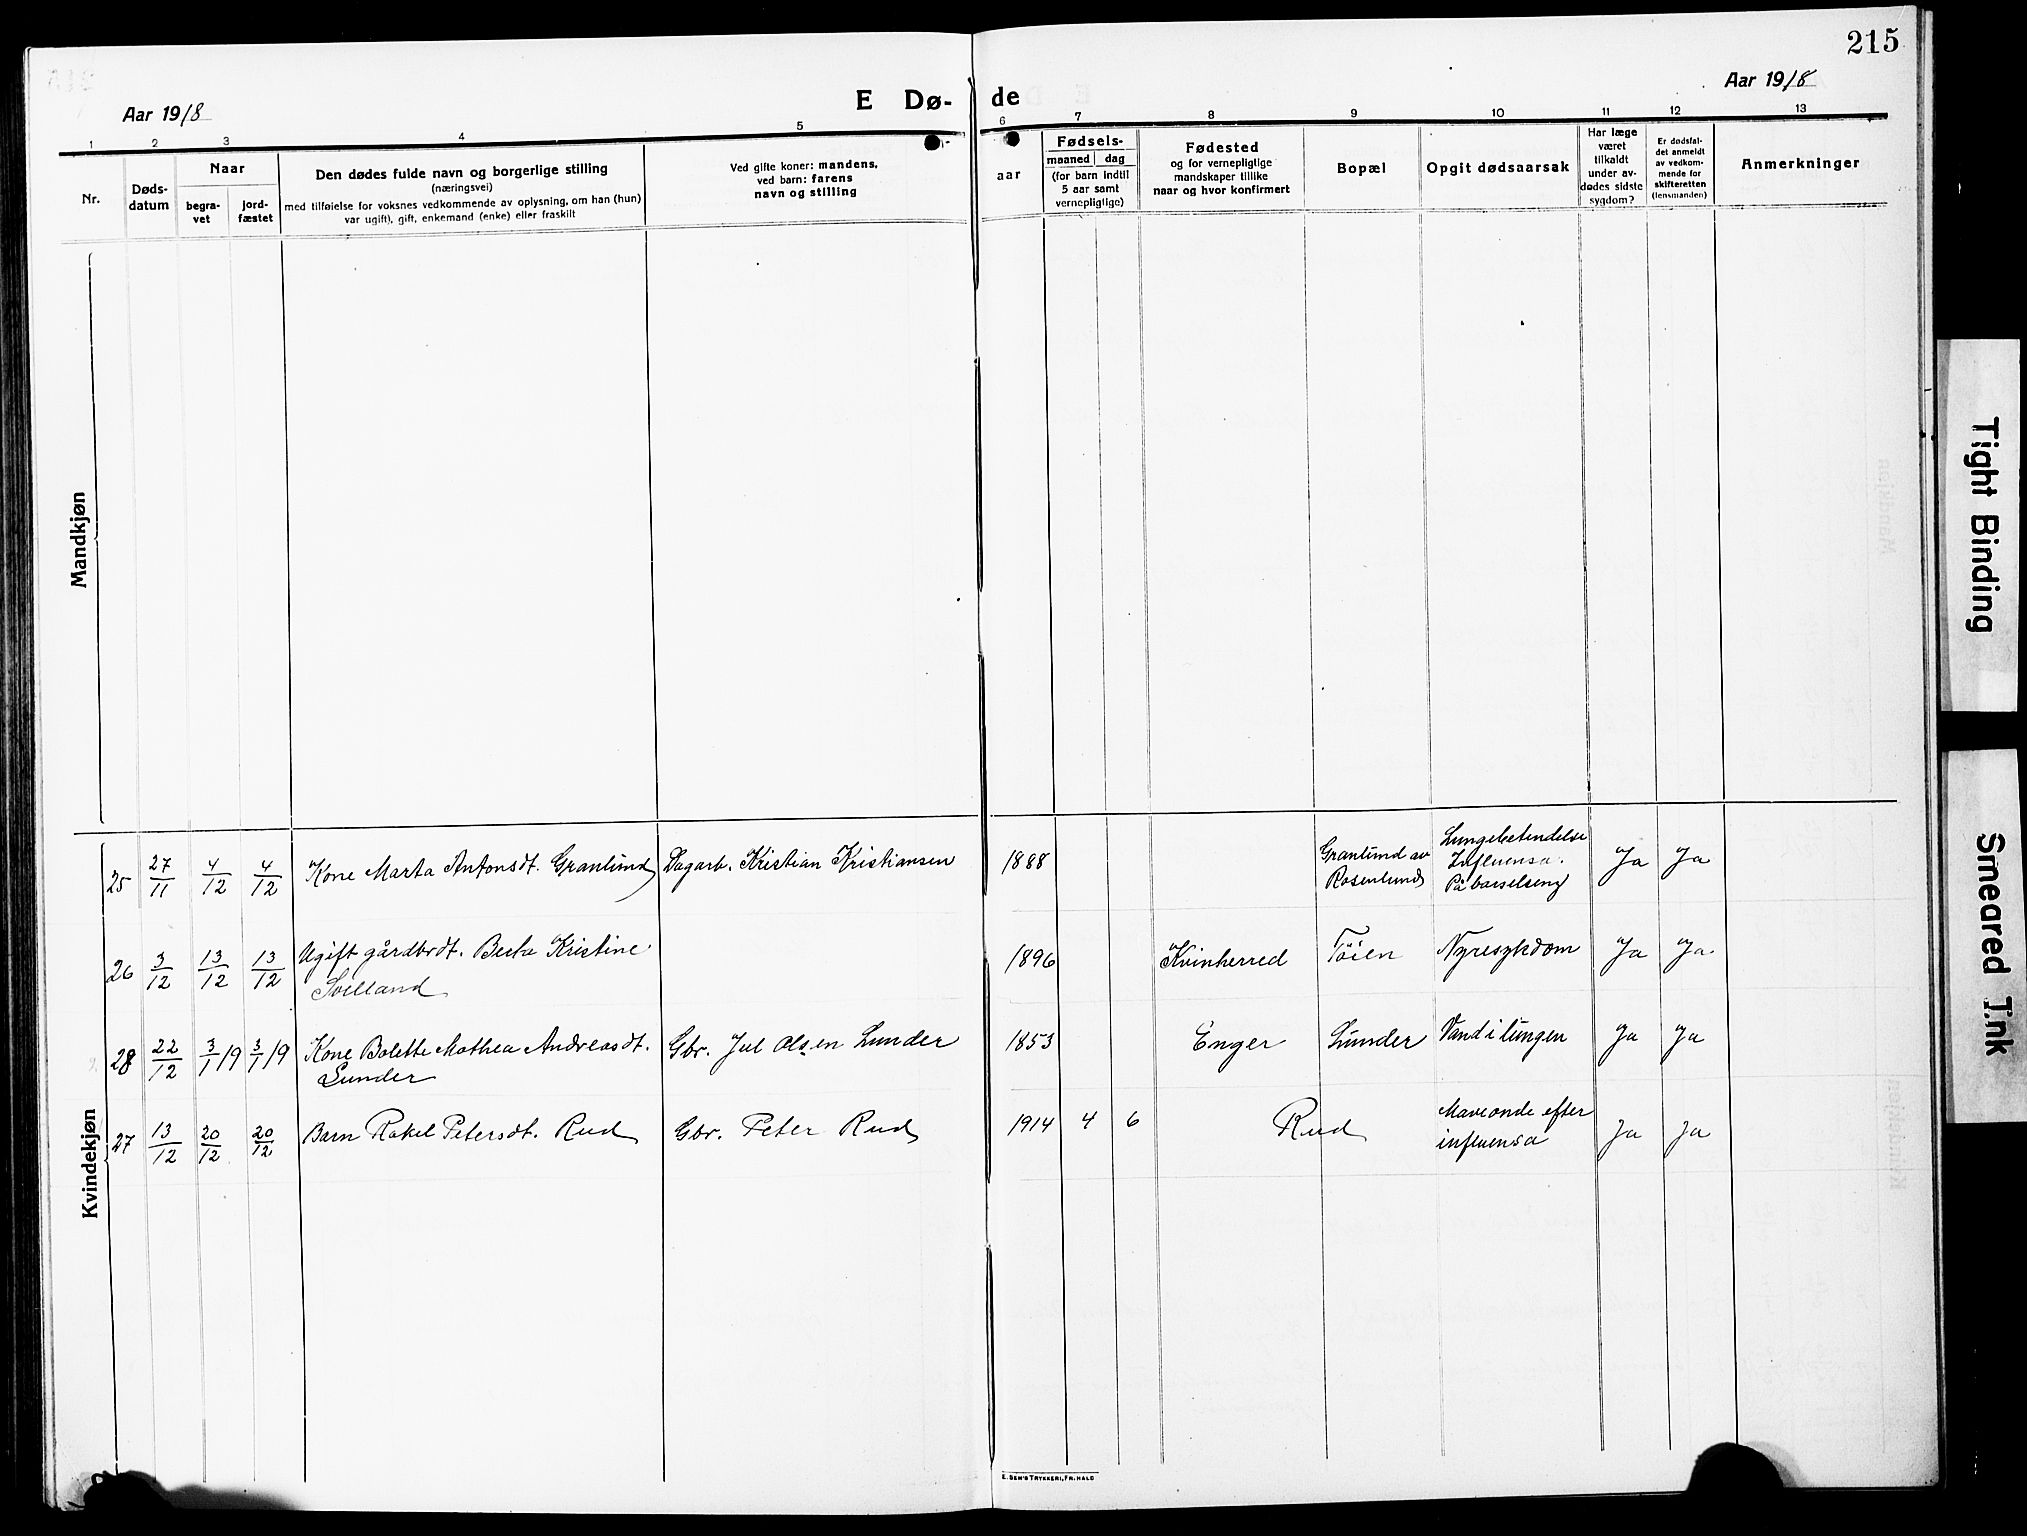 215
Aar 1918
E Dø-
de
Aar 1918
1 2 3 4 5 6 7 8 9 10 11 12 13
Nr.
Døds-
datum
Naar
begra-
vet
jord-
fæstet
Den dødes fulde navn og borgerlige stilling
(næringsvei)
med tilføielse for voksnes vedkommende av oplysning, om han (hun)
var ugift, gift, enkemand (enke) eller fraskilt
Ved gifte koner: mandens,
ved barn: farens
navn og stilling
aar
Fødsels-
maaned dag
(for barn indtil
5 aar samt
vernepligtige)
Fødested
og for vernepligtige
mandskaper tillike
naar og hvor konfirmert
Bopæl
Opgit dødsaarsak
Har læge
været
tilkaldt
under av-
dødes sidste
sygdom?
Er dødsfal-
det anmeldt
av vedkom-
mende for
skifteretten
(lensmanden)
Anmerkninger
Mandkjøn
Kvindekjøn
25 27/11 4/12 4/12 Kone Marta Antonsdt. Granlund Dagarb. Kristian Kristiansen 1888 Granlund av
Rosenlund
Lungebetendelse
Influensa.
På barselseng
Ja Ja
26 3/12 13/12 13/12 Ugift gårdbrdt. Berta Kristine
Soelland
1896 Kvinherred Töien Nyresykdom Ja Ja
28 22/12 3/1 19 3/1 19 Kone Bolette Mathea Andreasdt.
Lunder
Gbr. Jul Olsen Lunder 1853 Enger Lunder Vand i lungen Ja Ja
27 13/12 20/12 20/12 Barn Rakel Petersdt. Rud Gbr. Peter Rud 1914 4 6 Rud Maveonde efter
influensa
Ja Ja
E. SEM'S TRYKKERI, FR.HALD
Tight Binding
Smeared Ink